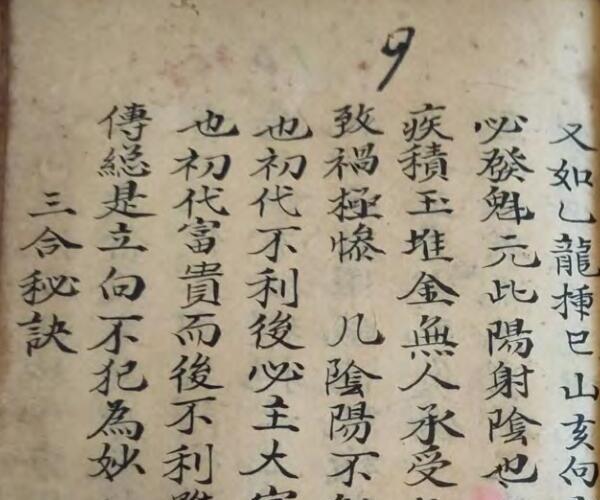 9
又如乙龍插巳山亥向
必發魁元此陽射陰也
疾積玉堆金無人承受
致禍極慘 凡陰陽不
也初代不利後必主大
也初代富貴而後不利
傳総是立向不犯為妙
三合秘訣